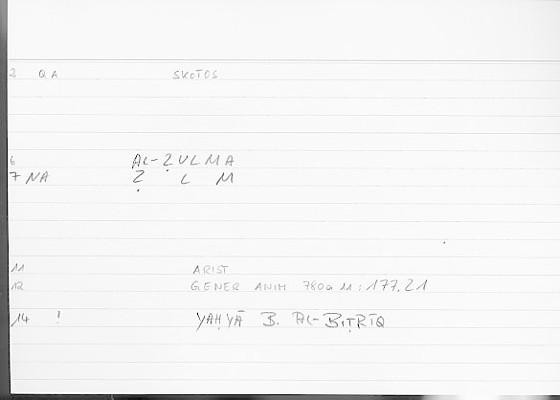 2 QA SKOTOS
6 AL-ẒULMA
7 NA Ẓ L M
11 ARIST
12 GENER ANIM 780a 11 : 177,21
14 ! YAḤYĀ B. AL-BIṬRĪQ